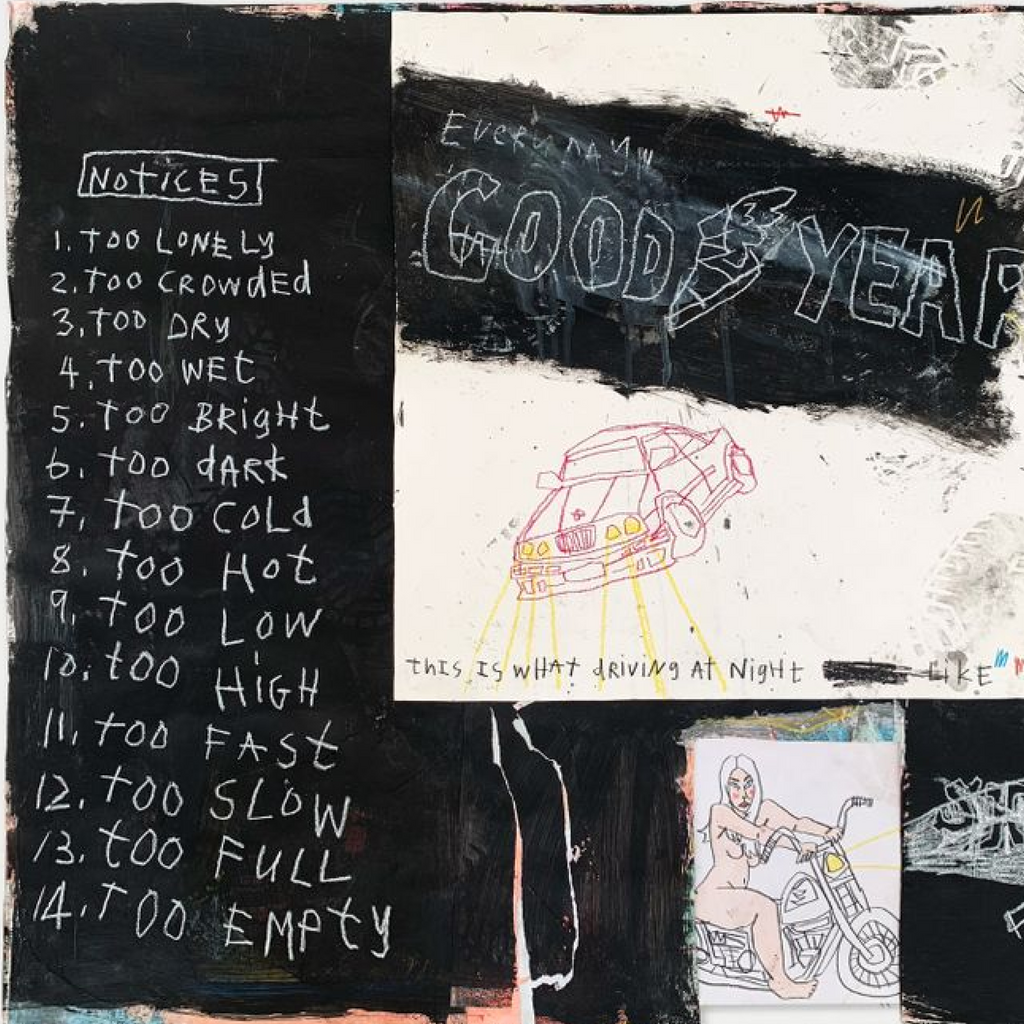 NOTICES
1. TOO LONELY
2. TOO CROWDED
3. TOO DRY
4. TOO WET
5. TOO BRIGHT
6. TOO DARK
7. TOO COLD
8. TOO HOT
9. TOO LOW
10. TOO HIGH
11. TOO FAST
12. TOO SLOW
13. TOO FULL
14. TOO EMPTY
GOOD YEAR
THIS IS WHAT DRIVING AT NIGHT LIKE